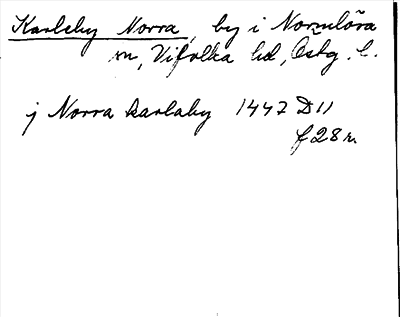 Karleby Norra, by i Normlösa
sn, Vifolka hd, Östg. l.
j Norra karlaby 1447 D 11
f 28 r.